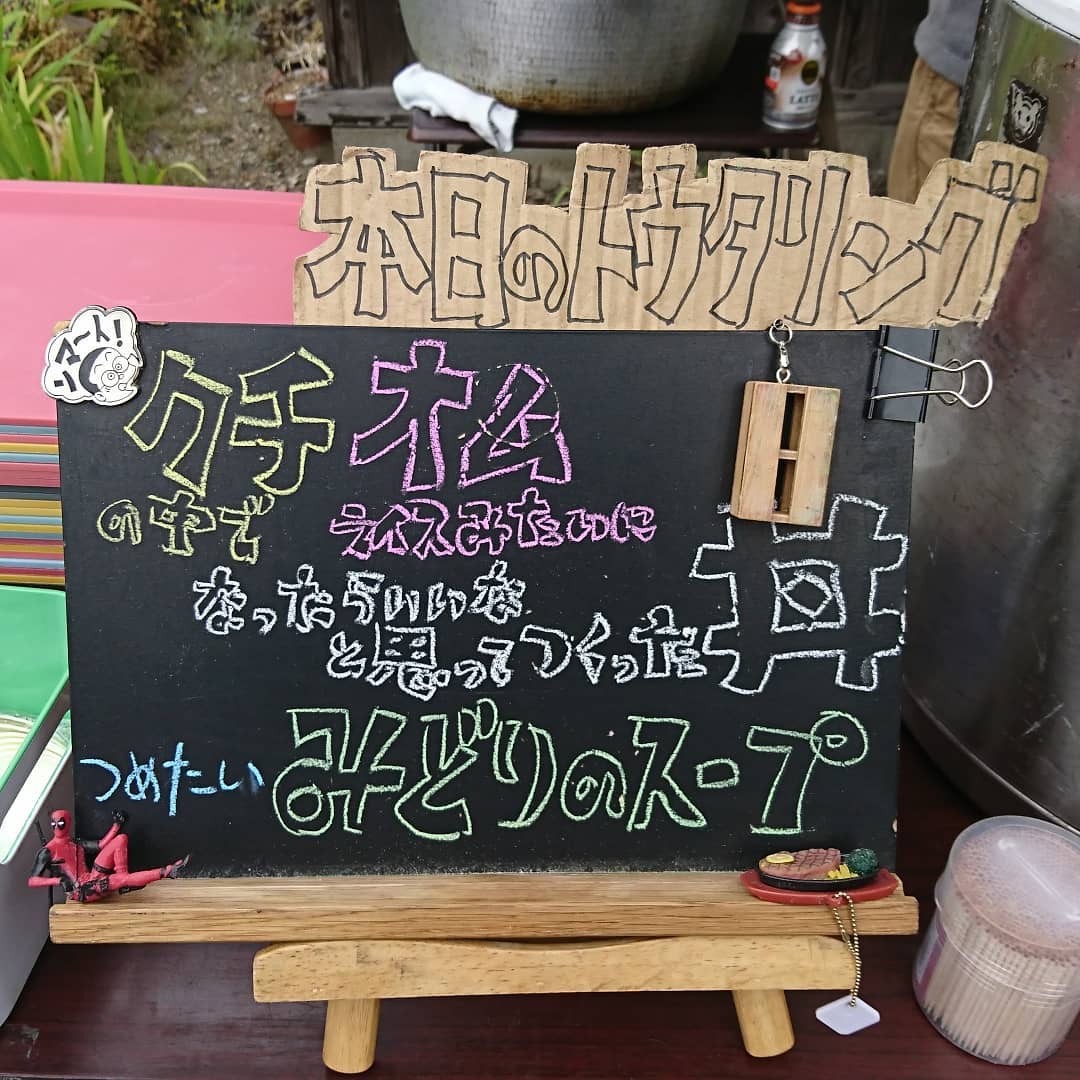 本日のトウタリング
ンマート!
クチ オム
の中で ライスみたいに
なったらいいな
と思ってつくった丼
つめたい みどりのスープ
LATTE